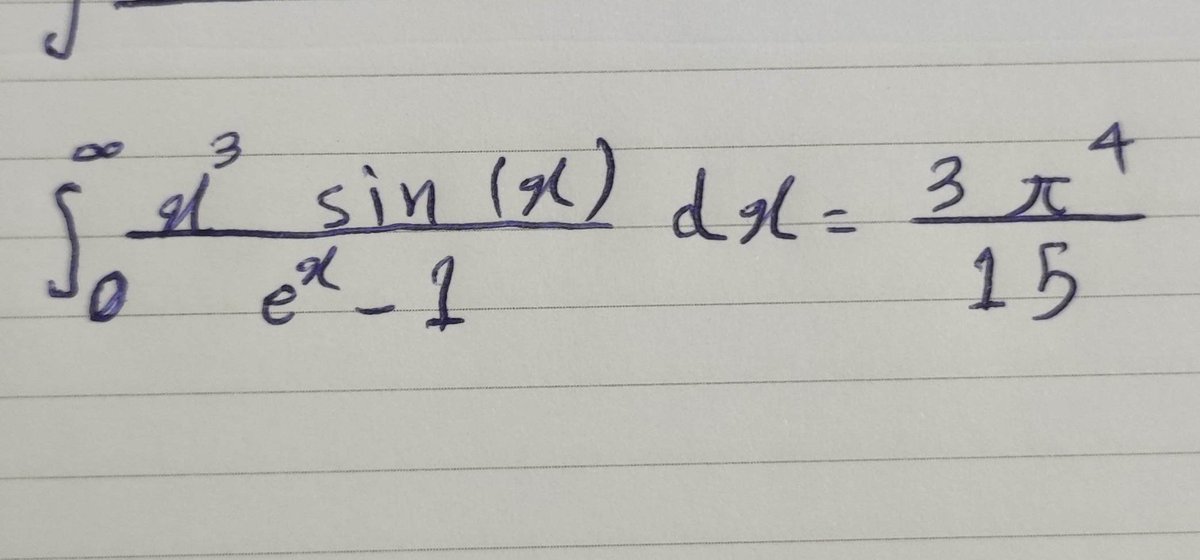 ∫₀^∞ x³ sin(x) / (eˣ - 1) dx = 3π⁴ / 15